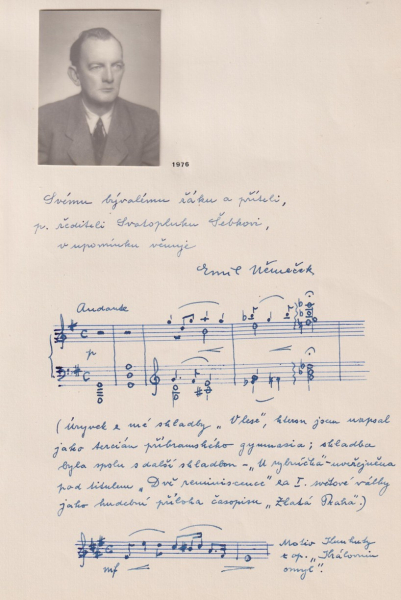 1976
Svému bývalému žáku a příteli,
p. řediteli Svatopluku Šebkovi,
v upomínku věnuje
Emil Němeček
Andante
p
(Úryvek z mé skladby „V lese", kterou jsem napsal
jako tercián příbramského gymnasia; skladba
byla spolu s další skladbou – „U rybníčka" – uveřejněna
pod titulem „Dvě reminiscence" za I. světové války
jako hudební příloha časopisu „Zlatá Praha".)
Motiv
z op. „Královnin
omyl".
mf